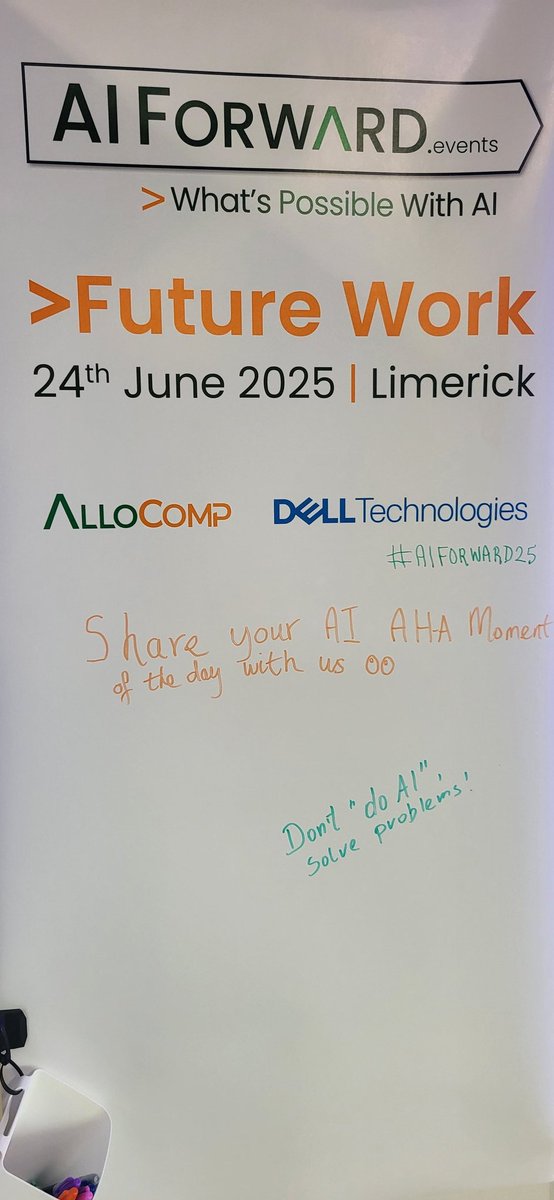 AI FORWARD.events
> What's Possible With AI
>Future Work
24th June 2025 | Limerick
ALLOCOMP DELLTechnologies
#AIFORWARD25
Share your AI AHA Moment
of the day with us
Don't "do AI",
solve problems!